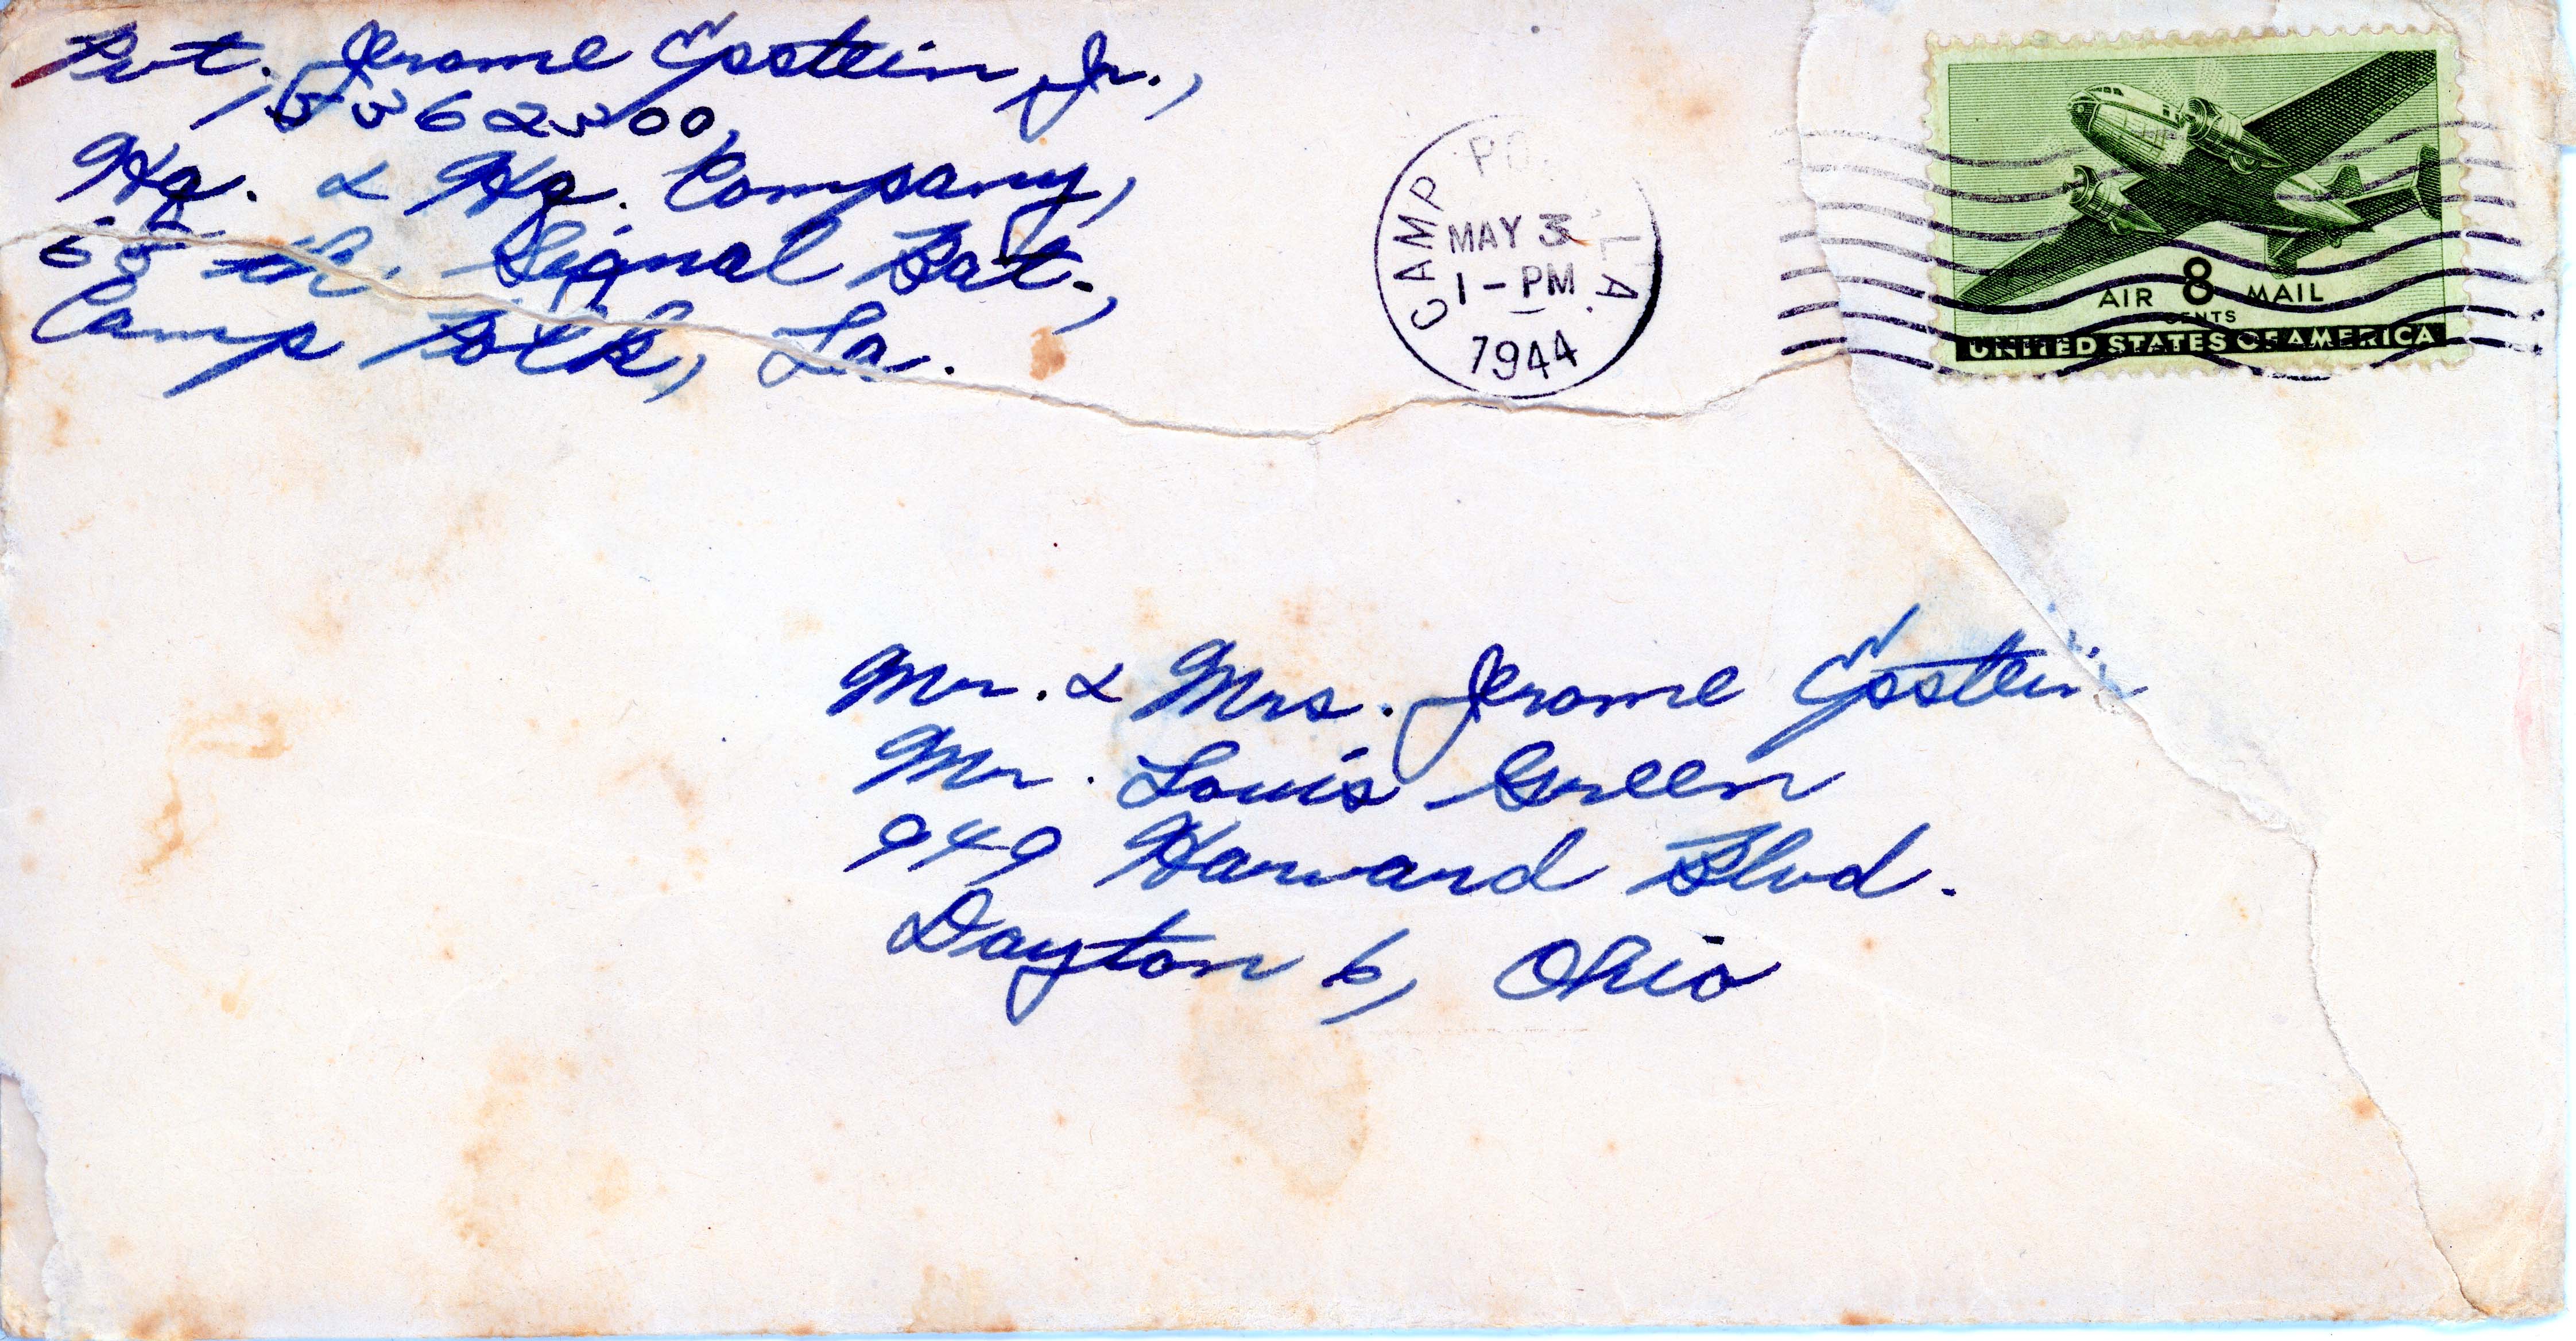 Pvt. Jerome Epstein Jr.,
Hq. & Hq. Company,
Signal Bat.,
Camp Polk, La.
CAMP PO LA.
MAY 3
1-PM
1944
8
AIR MAIL
CENTS
UNITED STATES OF AMERICA
Mr. & Mrs. Jerome Epstein
Mr. Louis Green
949 Harvard Blvd.
Dayton 6, Ohio